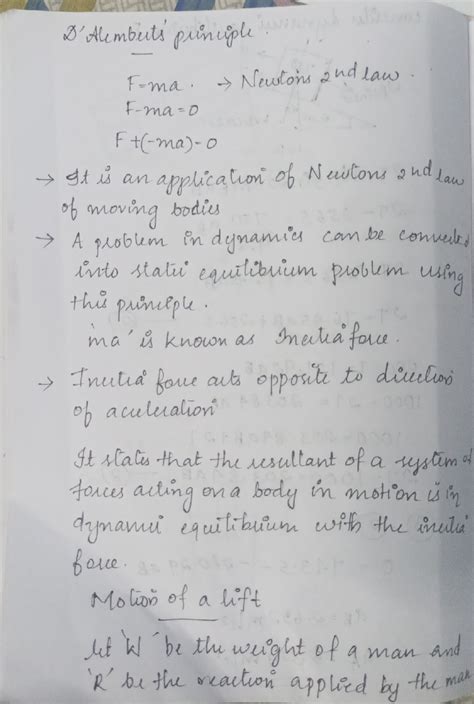 D'Alemberts' principle.
F=ma. → Newtons 2nd law.
F-ma=0
F+(-ma)-0
→ It is an application of Newtons 2nd law
of moving bodies
→ A problem in dynamics can be converted
into static equilibrium problem using
this principle.
'ma' is known as Inertia force.
→ Inertia force acts opposite to direction
of acceleration
It states that the resultant of a system of
forces acting on a body in motion is in
dynamic equilibrium with the inertia
force.
Motion of a lift
let 'W' be the weight of a man and
'R' be the reaction applied by the man